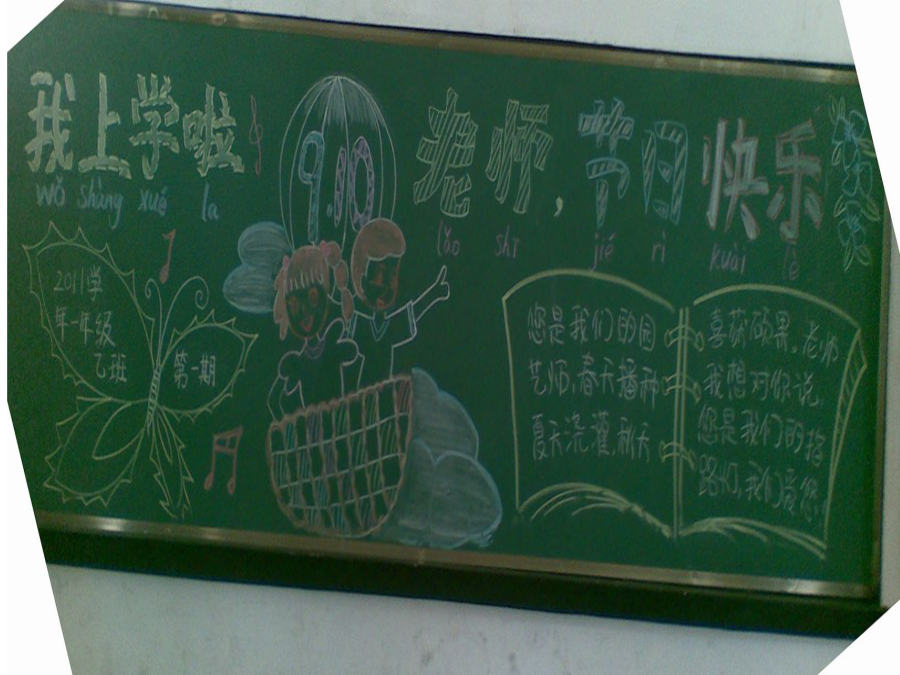 我上学啦
wǒ shàng xué la
9.10
老师,节日快乐
lǎo shī jié rì kuài lè
2011学
年一年级
乙班
第一期
您是我们的园
艺师,春天播种
夏天浇灌秋天
喜获硕果,老师
我想对你说,
您是我们的指
路灯,我们爱您